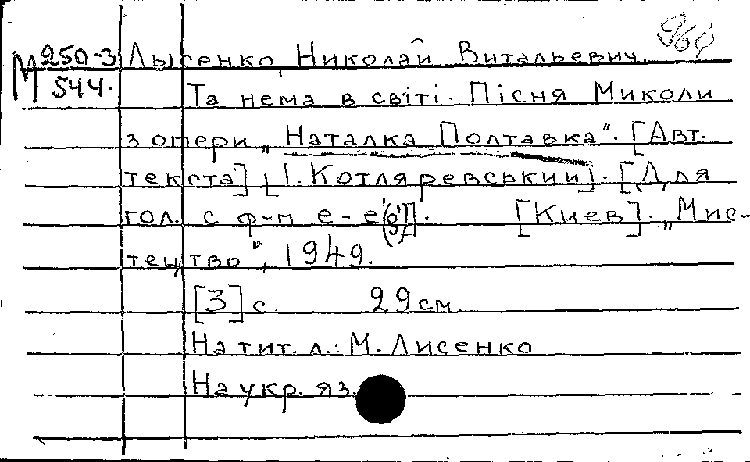 М 250-3 Лысенко, Николай Витальевич
544.
Та нема в світі. Пісня Миколи
з опери „Наталка Полтавка". [Авт.
текста] [І. Котляревський]. [Для
гол. с ф-п е-е]. [Киев]. „Мис-
тецтво", 1949.
[3] с. 29 см.
На тит. л.: М. Лисенко
На укр. яз.